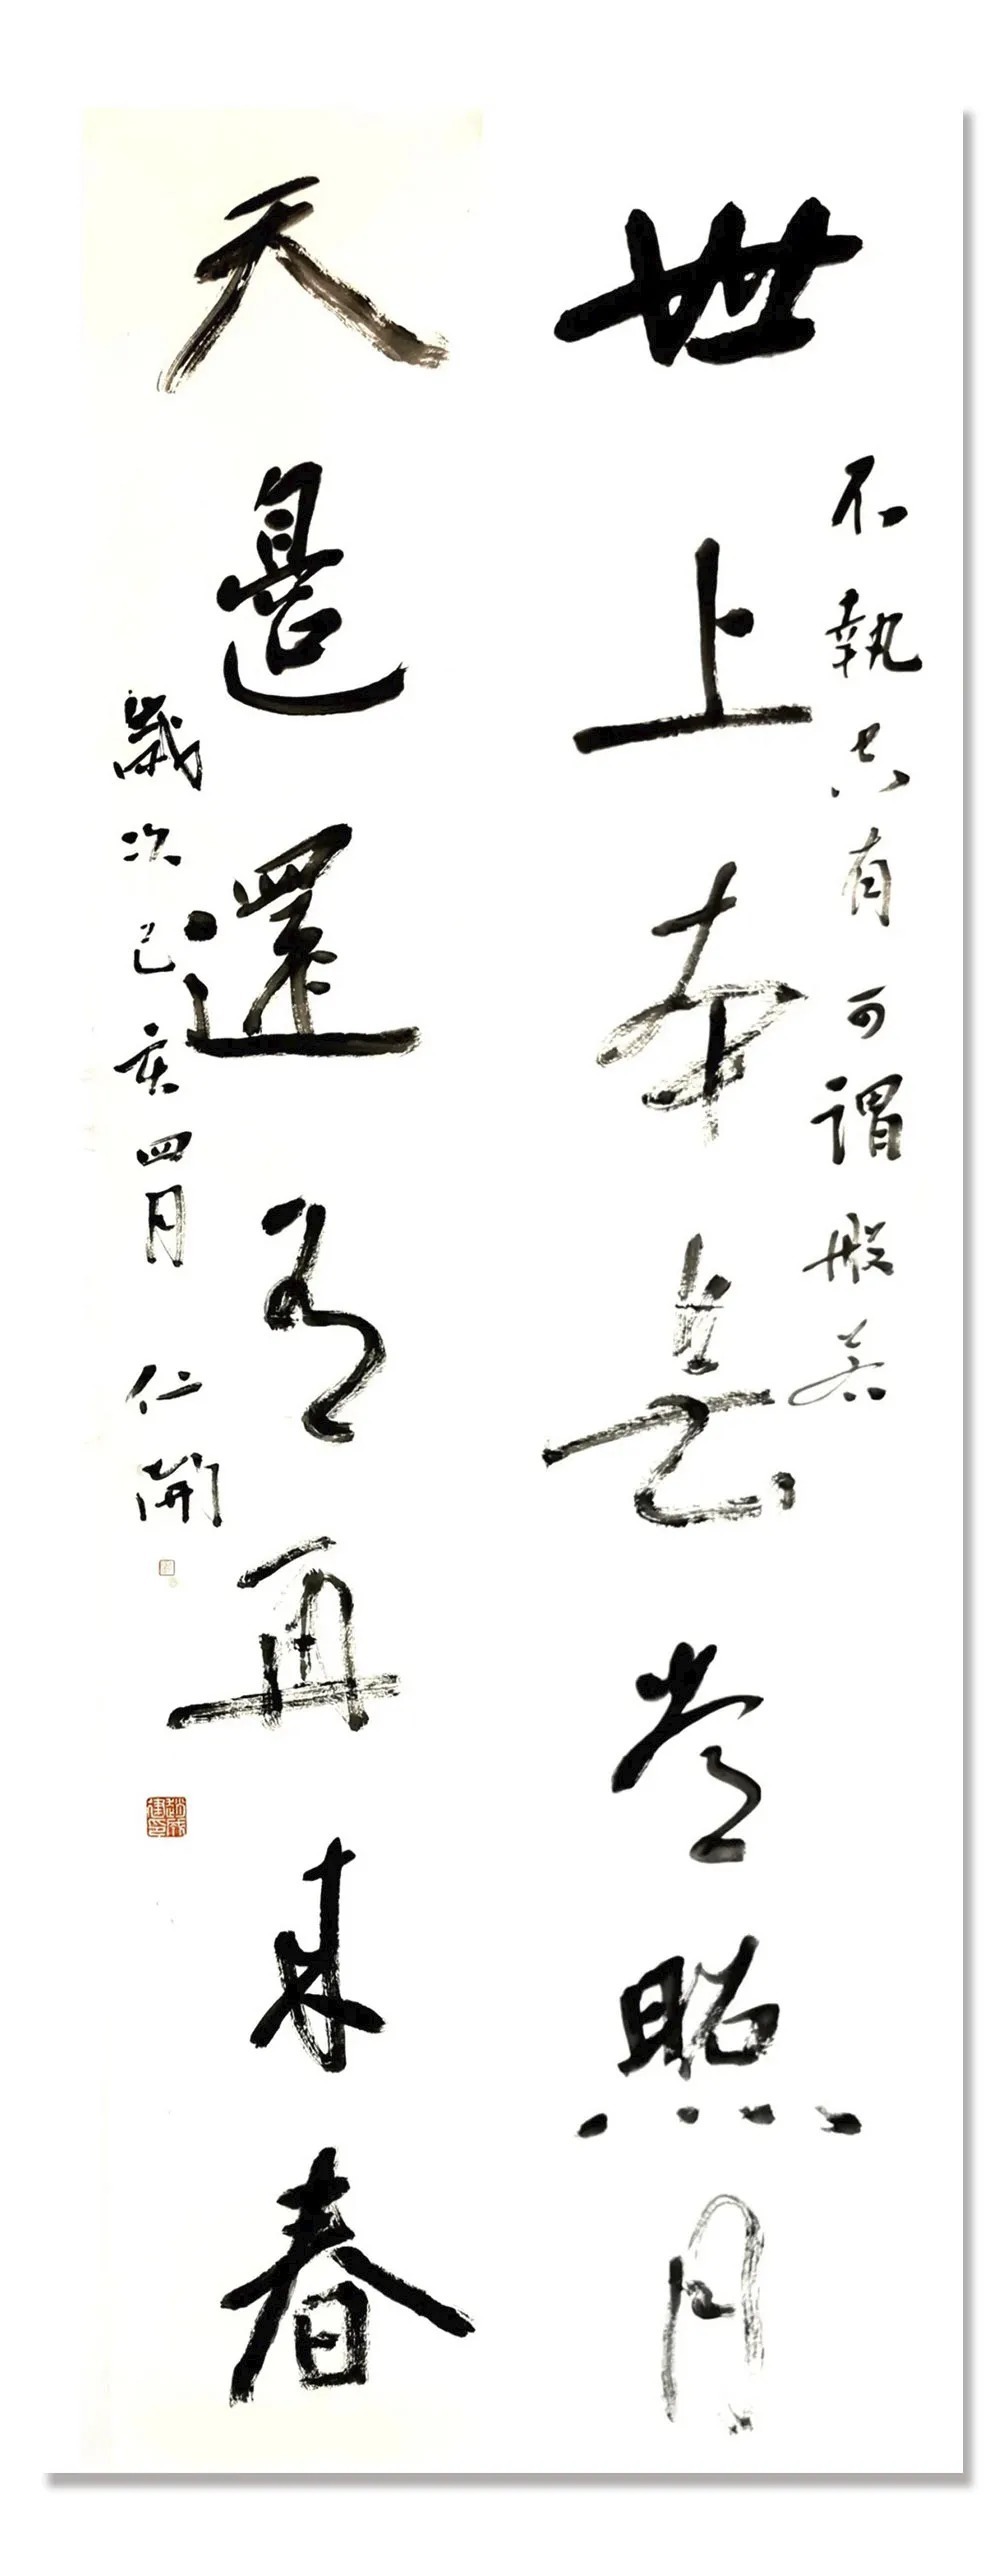 不執其有可謂般若
世上本無常照月
天邊還有再來春
歲次己亥四月 仁開